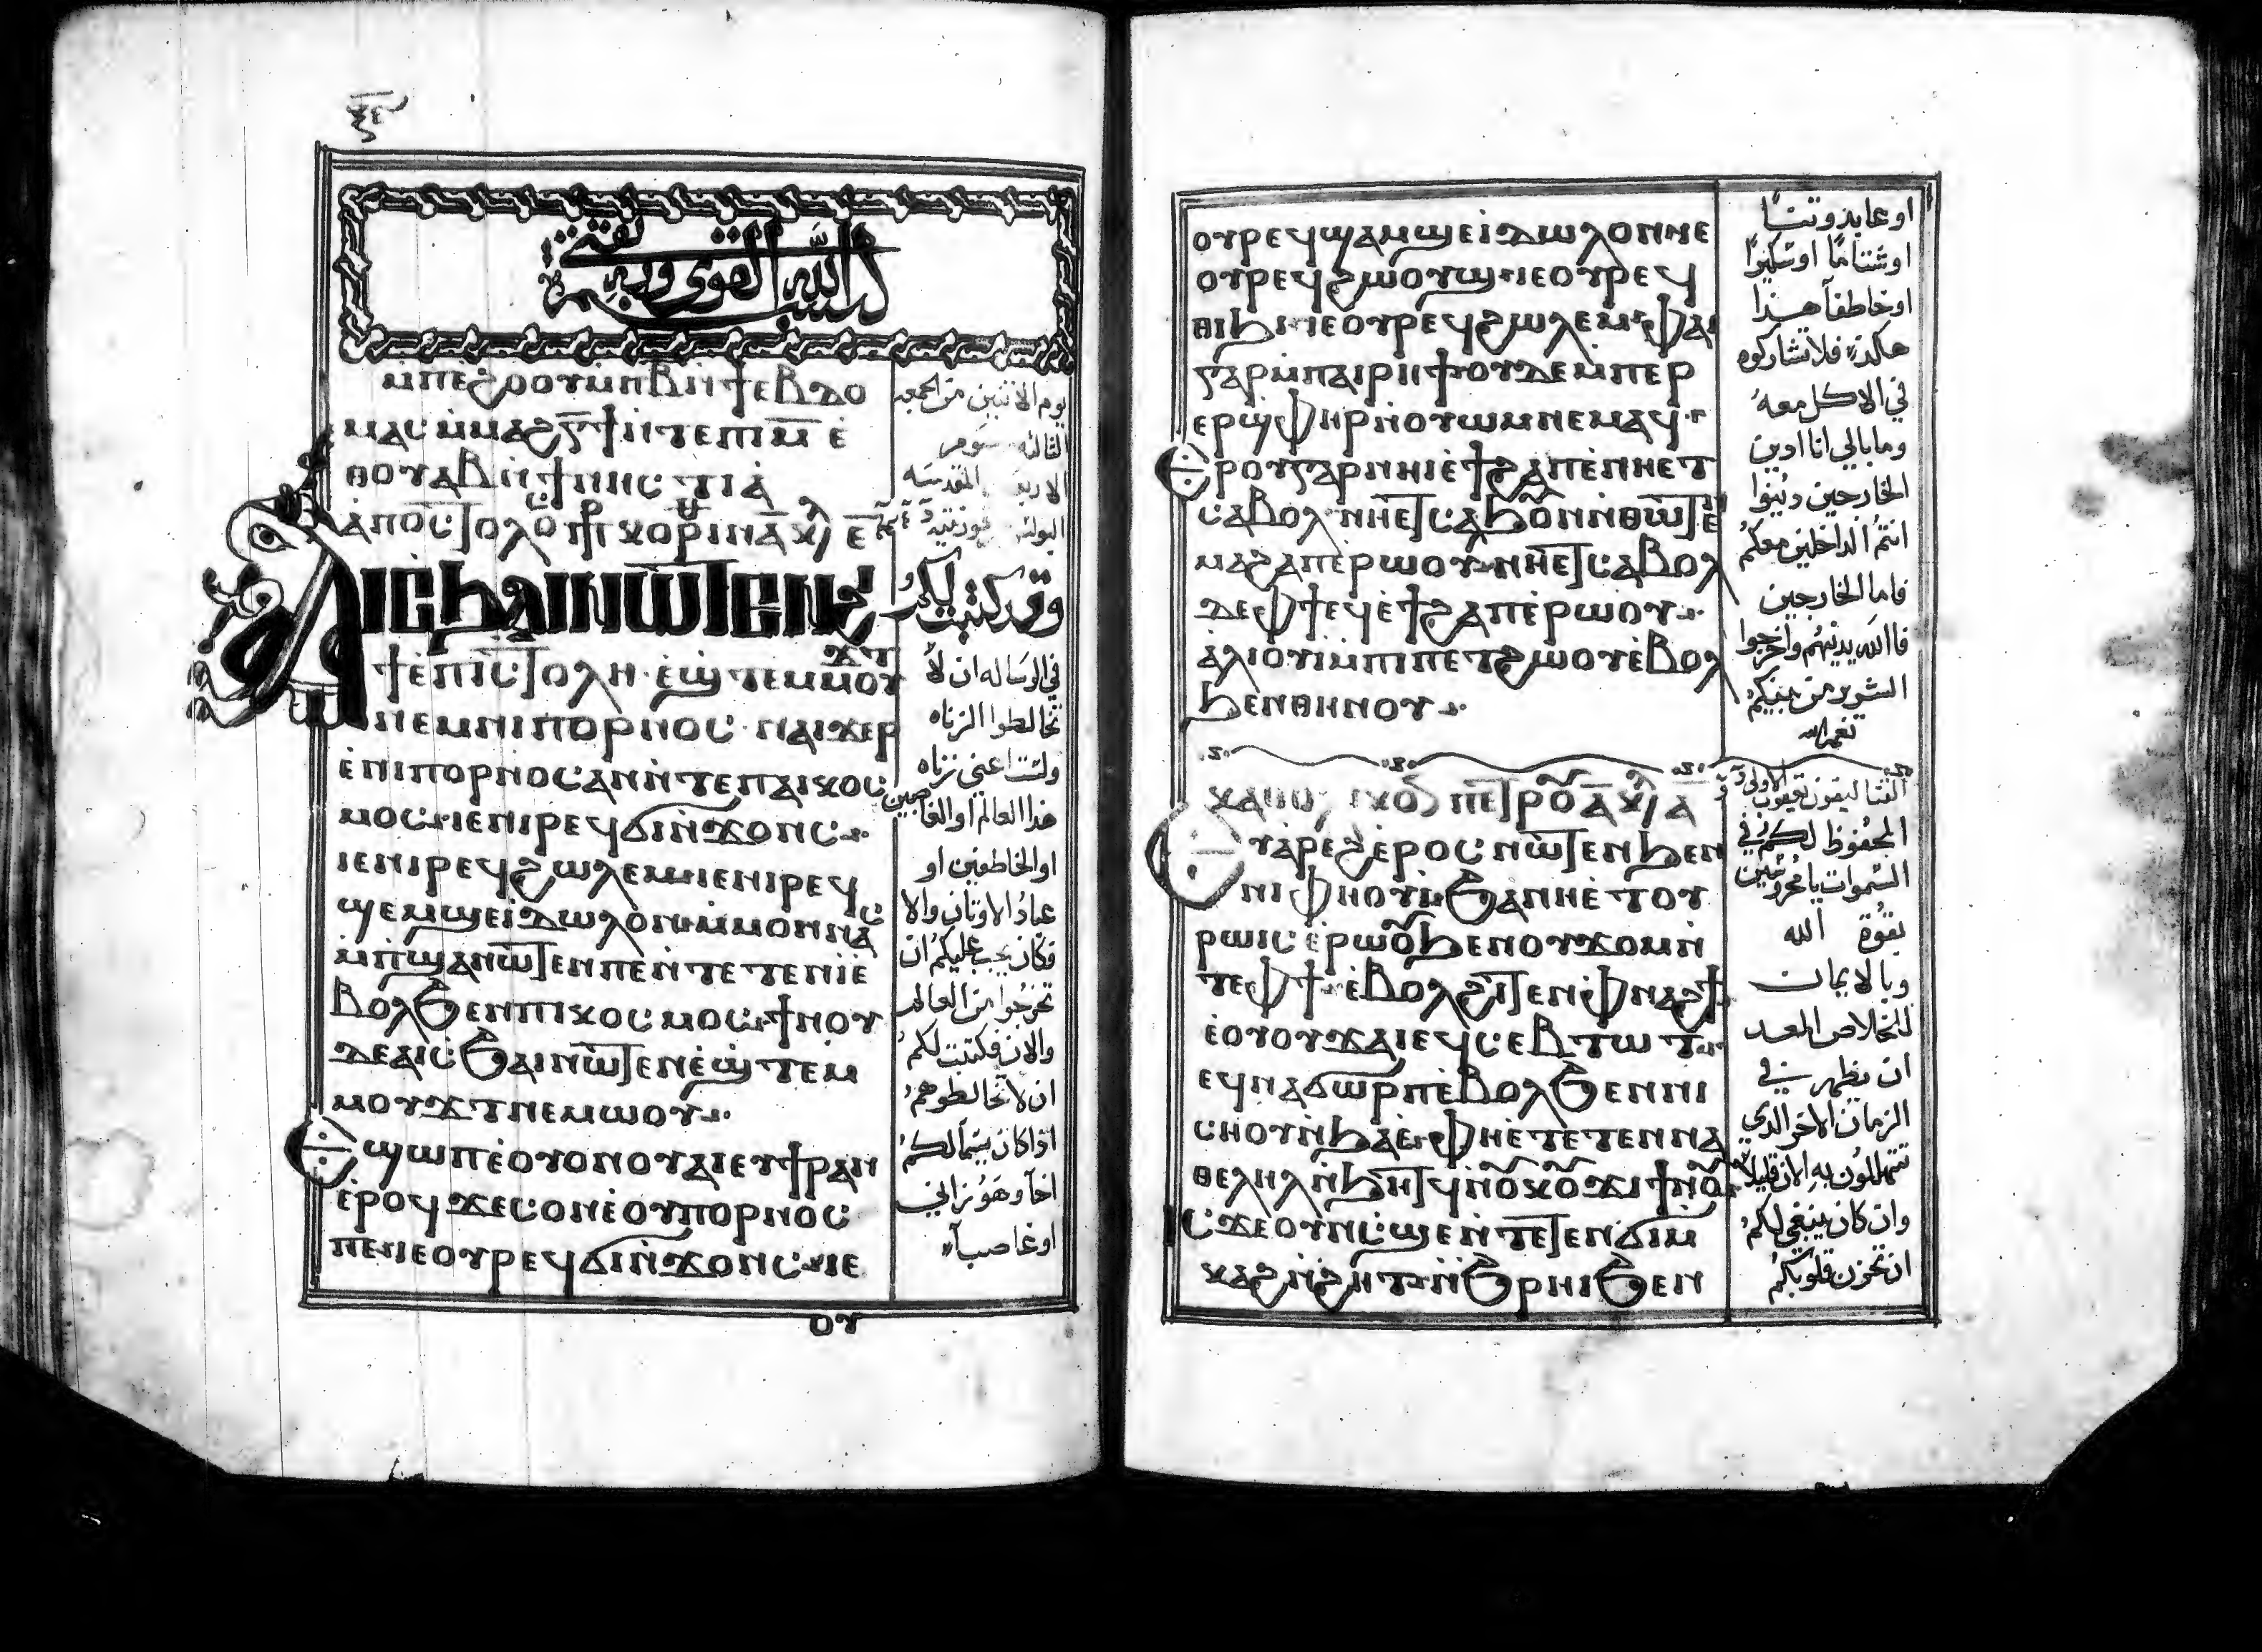 بسم الله القوى وبه نقتى
ⲙ̇ⲡⲉϩⲟⲟⲩⲙ̇ⲡⲃ̅ⲛ̇ϯⲉⲃⲇⲟ
ⲙⲁⲥⲙ̇ⲙⲁϩⲅ̅ϯⲛ̇ⲧⲉⲡⲓⲙ̅ⲉ̇
ⲑⲟⲩⲁⲃⲛ̇ϯⲛⲏⲥⲧⲓⲁ̇
يوم الاثنين من الجمعه
الثالثه
المقدسه
ⲁⲓⲥϧⲁⲓⲛⲱⲧⲉⲛϩⲓ
ϯⲉ̇ⲡⲓⲥⲧⲟⲗⲏ·ⲉ̇ϣ̇ⲧⲉⲙⲙⲟⲩϫⲧ
ⲛⲉⲙⲛⲓⲡⲟⲣⲛⲟⲥ·ⲛⲁⲓϫⲉⲣ
ⲉ̇ⲛⲓⲡⲟⲣⲛⲟⲥⲁⲛⲛ̇ⲧⲉⲡⲁⲓⲕⲟⲥ
ⲙⲟⲥ·ⲓⲉⲛⲓⲣⲉϥϭⲓⲛ̇ϫⲟⲛⲥ⁘
ⲓⲉⲛⲓⲣⲉϥϩⲱⲗⲉⲙ·ⲓⲉⲛⲓⲣⲉϥ
ϣⲉⲙϣⲉⲓ̇ⲇⲱⲗⲟⲛ·ⲙ̇ⲙⲟⲛⲛⲁⲥ
ⲙ̇ⲡ̇ϣⲁⲛⲱⲧⲉⲛⲡⲉⲛ̇ⲧⲉⲧⲉⲛⲓⲉ̇
ⲃⲟⲗϧⲉⲛⲡⲓⲕⲟⲥⲙⲟⲥ·ϯⲛⲟⲩ
ⲇⲉⲁⲓⲥ̇ϧⲁⲓⲛⲱⲧⲉⲛⲉ̇ϣ̇ⲧⲉⲙ
ⲙⲟⲩϫⲧⲛⲉⲙⲱⲟⲩ⁘
ⲉϣⲱⲡⲉ̇ⲟⲩⲟⲛⲟⲩⲁⲓⲉⲩϯⲣⲁⲛ
ⲉ̇ⲣⲟϥϫⲉⲥⲟⲛⲉ̇ⲟⲩⲡⲟⲣⲛⲟⲥ
ⲡⲉ·ⲓⲉⲟⲩⲣⲉϥϭⲓⲛ̇ϫⲟⲛⲥ·ⲓⲉ
ⲟⲩ
وقد كتبت ليكم
في الرساله ان لا
تخالطوا الزناه
ولست اعني زناه
هذا العالم او الغاصبين
او الخاطفين او
عباد الاوثان والا
فكان يجب عليكم ان
تخرجوا من العالم
والان فكتبت لكم
ان لا تخالطوهم
اذا كان يسما لكم
اخا وهو زاني
او غاصبا
ⲟⲩⲣⲉϥϣⲁⲙϣⲉⲓ̇ⲇⲱⲗⲟⲛⲡⲉ
ⲟⲩⲣⲉϥϩⲱⲟⲩϣ·ⲓⲉⲟⲩⲣⲉϥ
ⲑⲓϧⲓ·ⲓⲉⲟⲩⲣⲉϥϩⲱⲗⲉⲙ·ⲫⲁⲓ
ⲅⲁⲣⲙ̇ⲡⲁⲓⲣⲏϯⲟⲩⲇⲉⲙⲡⲉⲣ
ⲉⲣϣⲫⲏⲣⲛ̇ⲟⲩⲱⲙⲛⲉⲙⲁϥ·
ⲉⲣⲟⲩⲅⲁⲣⲛⲏⲓⲉ̇ϯϩⲁⲡⲉ̇ⲛⲏⲉⲧ
ⲥⲁⲃⲟⲗ·ⲛⲏⲉⲧⲥⲁϧⲟⲩⲛⲛⲑⲱⲧⲉ
ⲙⲁϩⲁⲡⲉ̇ⲣⲱⲟⲩ·ⲛⲏⲉⲧⲥⲁⲃⲟⲗ
ⲇⲉⲫϯⲉϥⲉ̇ϯϩⲁⲡⲉ̇ⲣⲱⲟⲩ⁘
ⲁ̇ⲗⲓⲟⲩⲓ̇ⲙ̇ⲡⲓⲡⲉⲧϩⲱⲟⲩⲉ̇ⲃⲟⲗ
ϧⲉⲛⲑⲏⲛⲟⲩ⁘
او عابد وثنا
او شتاما او سكيرا
او خاطفا هذا
هكذا فلا تشاركوه
في الاكل معه
وما بالي انا ادين
الخارجين دينوا
انتم الداخلين معكم
فاما الخارجين
فالله يدينهم واخرجوا
الشرير من بينكم
ⲉⲩⲁ̇ⲣⲉϩⲉ̇ⲣⲟⲥⲛⲱⲧⲉⲛϧⲉⲛ
ⲛⲓⲫⲏⲟⲩⲓ·ϧⲁⲛⲏⲉ̇ⲧⲟⲩ
ⲣⲱⲓⲥⲉ̇ⲣⲱⲟⲩϧⲉⲛⲟⲩϫⲟⲙⲛ̇
ⲧⲉⲫϯ·ⲉ̇ⲃⲟⲗϩⲓⲧⲉⲛⲫⲛⲁϩϯ
ⲉ̇ⲟⲩⲟⲩϫⲁⲓⲉϥⲥⲉⲃⲧⲱⲧ⁘
ⲉϥⲛⲁϭⲱⲣⲡⲉ̇ⲃⲟⲗϧⲉⲛⲡⲓ
ⲥⲏⲟⲩⲛ̇ϧⲁⲉ̇·ⲫⲏⲉ̇ⲧⲉⲧⲉⲛⲛⲁ
ⲑⲉⲗⲏⲗⲛ̇ϧⲏⲧϥⲛ̇ⲟⲩⲕⲟⲩϫⲓϯⲛⲟⲩ
ⲓⲥϫⲉⲟⲩⲛⲥ̇ϣⲉⲛ̇ⲧⲉⲧⲉⲛϭⲓⲙ
ⲕⲁϩⲛ̇ϩⲏⲧ·ⲛ̇ϧⲣⲏⲓϧⲉⲛ
المحفوظ لكم في
السموات يا محروسين
بقوة الله
وبالايمان
للخلاص المعد
ان يظهر في
الزمان الاخر الذي
تتهللون به الان قليلا
وان كان ينبغي لكم
ان تحزن قلوبكم